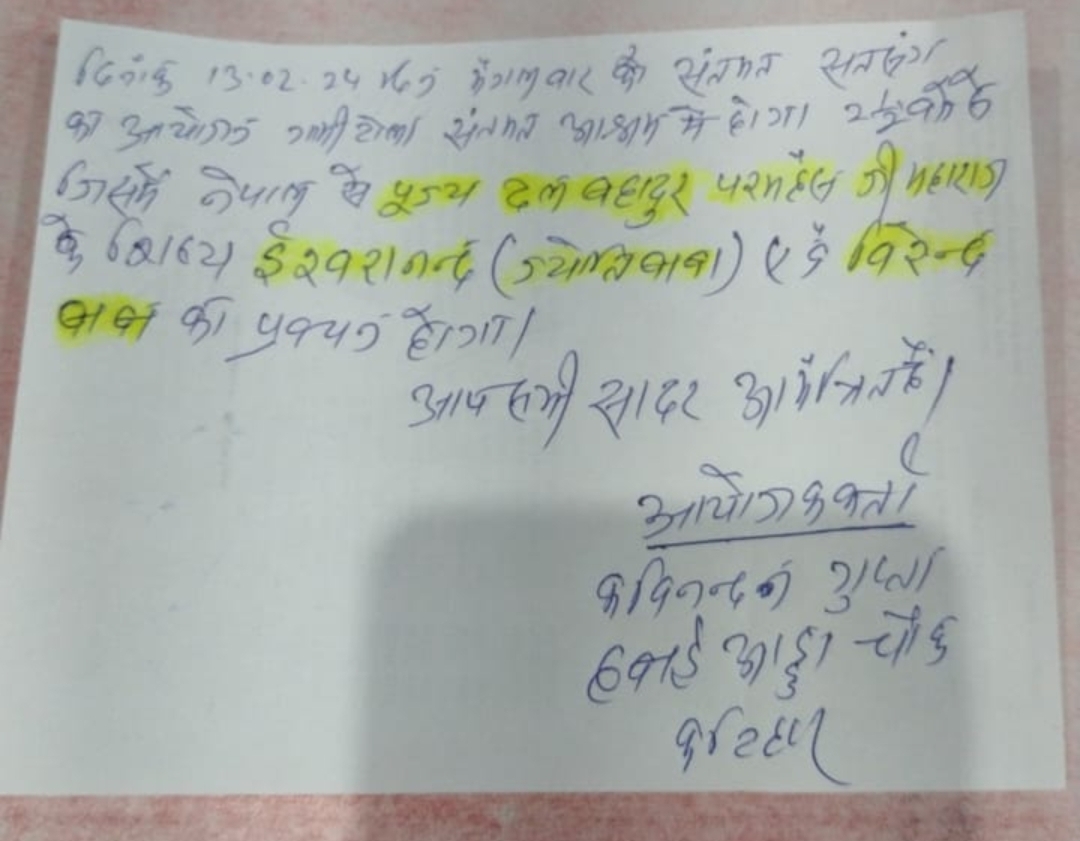 दिनांक 13.02.24 दिन मंगलवार को संतमत सतसंग
का आयोजन संतमत आश्रम में होगा। 2½ बजे से
जिसमें नेपाल से पूज्य दल बहादुर परमहंस जी महाराज
के शिष्य ईश्वरानन्द (ज्योति बाबा) एवं विरेन्द्र
बाबा का प्रवचन होगा।
आप सभी सादर आमंत्रित हैं।
आयोजककर्ता
कविनन्दन गुप्ता
हवाई अड्डा चौक
कटिहार